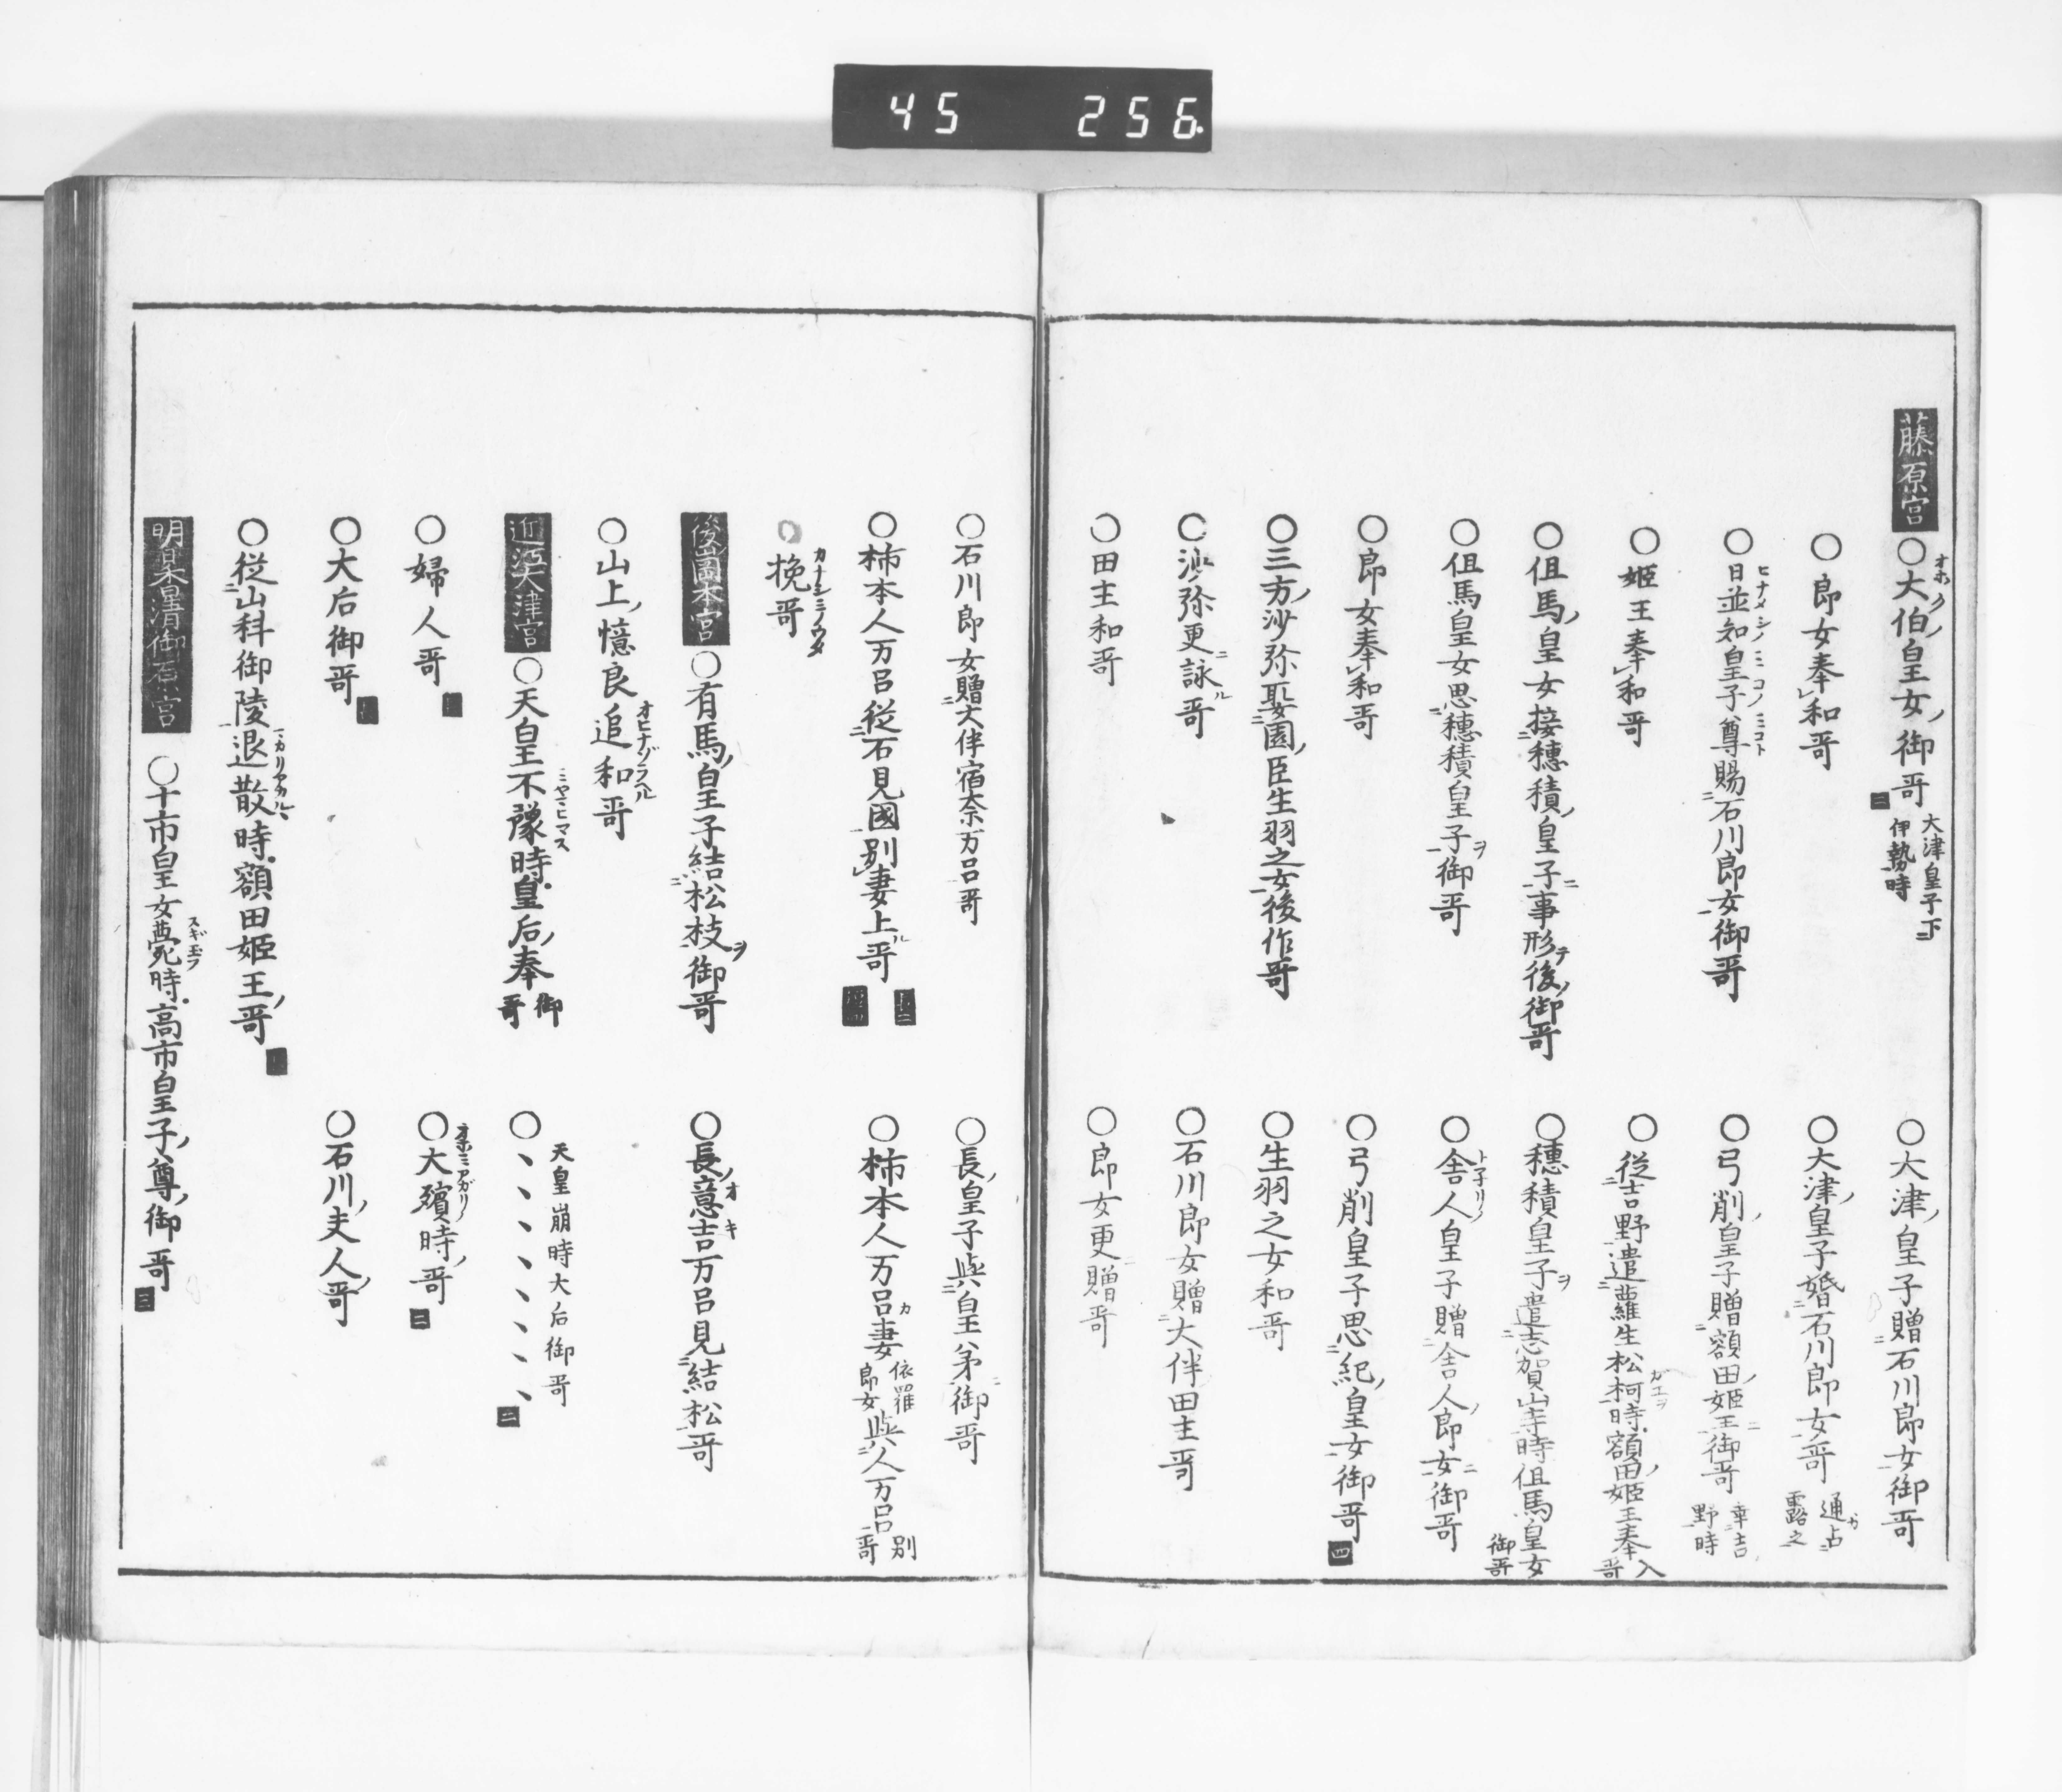 45 256
藤原宮
○大伯皇女御哥 二 大津皇子下伊勢時
○大津皇子贈石川郎女御哥
○郎女奉和哥
○大津皇子婚石川郎女哥 通占露之
○日並知皇子尊賜石川郎女御哥
○弓削皇子贈額田姫王御哥 幸吉野時
○姫王奉和哥
○從吉野遣蘿生松柯時額田姫王奉入哥
○但馬皇女接穗積皇子事形後御哥
○穗積皇子遣志賀山寺時但馬皇女御哥
○但馬皇女思穗積皇子御哥
○舍人皇子贈舍人郎女御哥
○郎女奉和哥
○弓削皇子思紀皇女御哥 四
○三方沙弥娶園臣生羽之女後作哥
○生羽之女和哥
○沙弥更詠哥
○石川郎女贈大伴田主哥
○田主和哥
○郎女更贈哥
○石川郎女贈大伴宿奈万呂哥
○長皇子與皇弟御哥
○柿本人万呂從石見國別妻上哥
○柿本人万呂妻依羅郎女與人万呂別哥
○挽哥
後崗本宮
○有馬皇子結松枝御哥
○長意吉万呂見結松哥
○山上憶良追和哥
近江大津宮
○天皇不豫時皇后奉御哥
○天皇崩時大后御哥 二
○婦人哥 一
○大殯時哥 二
○大后御哥 一
○石川夫人哥
○從山科御陵退散時額田姫王哥 一
明日香清御原宮
○十市皇女薨時高市皇子尊御哥 三